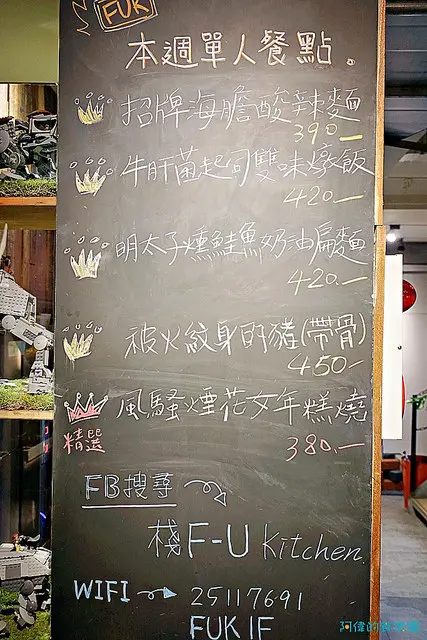 FUK
本週單人餐點。
招牌海膽酸辣麵
390—
牛肝菌起司雙味燉飯
420—
明太子燻鮭魚奶油扁麵
420.—
被火紋身的豬(帶骨)
450—
風騷煙花女年糕燒
精選
380.—
FB搜尋
棧F-U Kitchen
WIFI → 25117691
FUK IF
阿偉的